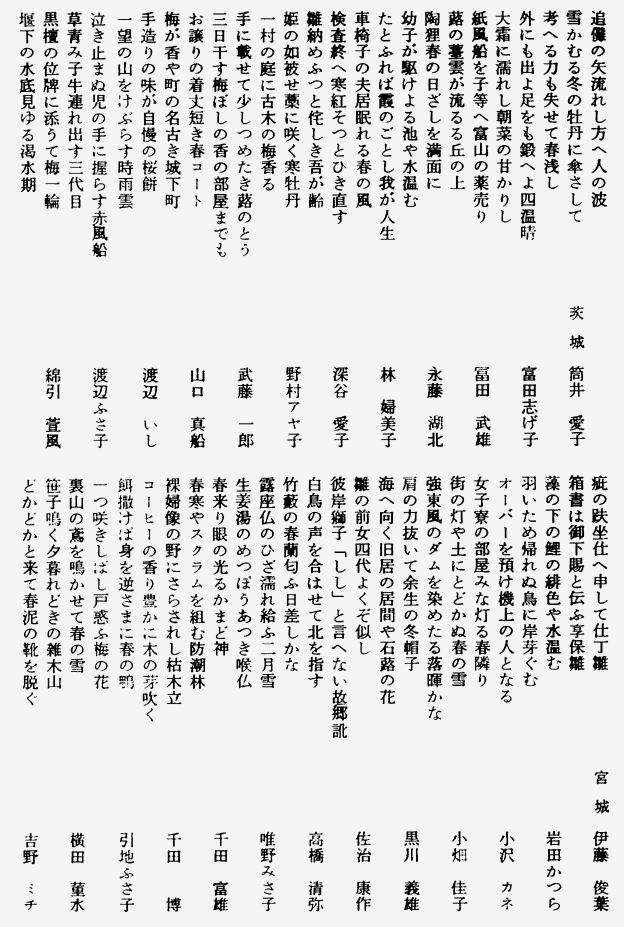 追儺の矢流れし方へ人の波
雪かむる冬の牡丹に傘さして
茨城 筒井 愛子
考へる力も失せて春浅し
外にも出よ足をも鍛へよ四温晴
富田志げ子
大霜に濡れし朝菜の甘かりし
紙風船を子等へ富山の薬売り
冨田 武雄
蕗の薹雲が流るる丘の上
陶狸春の日ざしを満面に
永藤 湖北
幼子が駆けよる池や水温む
たとふれば霞のごとし我が人生
林 婦美子
車椅子の夫居眠れる春の風
検査終へ寒紅そつとひき直す
深谷 愛子
雛納めふつと侘しき吾が齢
姫の如被せ藁に咲く寒牡丹
野村アヤ子
一村の庭に古木の梅香る
手に載せて少しつめたき蕗のとう
武藤 一郎
三日干す梅ぼしの香の部屋までも
お譲りの着丈短き春コート
山口 真船
梅が香や町の名古き城下町
手造りの味が自慢の桜餅
渡辺 いし
一望の山をけぶらす時雨雲
泣き止まぬ児の手に握らす赤風船
渡辺ふさ子
草青み子牛連れ出す三代目
黒檀の位牌に添うて梅一輪
綿引 萱風
堰下の水底見ゆる渇水期
疵の趺坐仕へ申して仕丁雛
宮城 伊藤 俊葉
箱書は御下賜と伝ふ享保雛
藻の下の鯉の緋色や水温む
岩田かつら
羽いため帰れぬ鳥に岸芽ぐむ
オーバーを預け機上の人となる
小沢 カネ
女子寮の部屋みな灯る春隣り
街の灯や土にとどかぬ春の雪
小畑 佳子
強東風のダムを染めたる落暉かな
肩の力抜いて余生の冬帽子
黒川 義雄
海へ向く旧居の居間や石蕗の花
雛の前女四代よくぞ似し
佐治 康作
彼岸獅子「しし」と言へない故郷訛
白鳥の声を合はせて北を指す
高橋 清弥
竹藪の春蘭匂ふ日差しかな
露座仏のひざ濡れ給ふ二月雪
唯野みさ子
生姜湯のめつぽうあつき喉仏
春来り眼の光るかまど神
千田 富雄
春寒やスクラムを組む防潮林
裸婦像の野にさらされし枯木立
千田 博
コーヒーの香り豊かに木の芽吹く
餌撒けば身を逆さまに春の鴨
引地ふさ子
一つ咲きしばし戸惑ふ梅の花
裏山の鳶を鳴かせて春の雪
横田 菫水
笹子鳴く夕暮れどきの雑木山
どかどかと来て春泥の靴を脱ぐ
吉野 ミチ